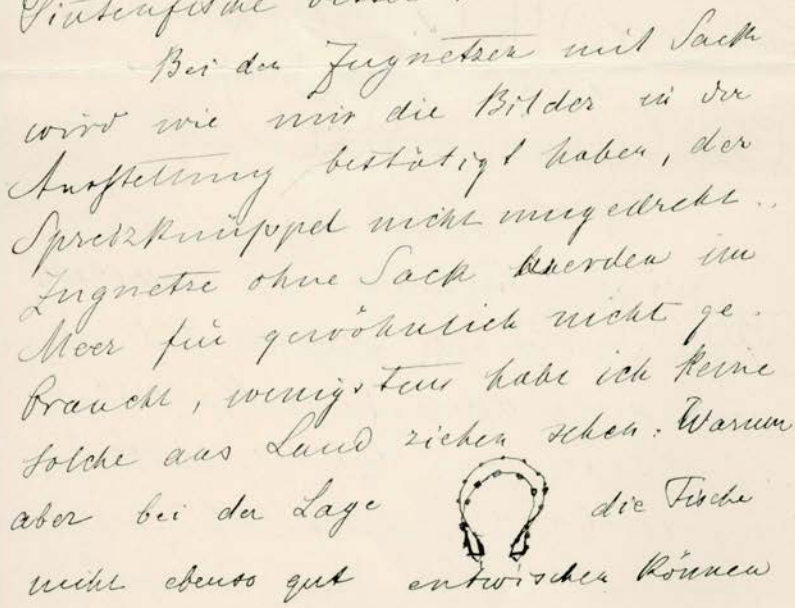 Tintenfische besser.
Bei den Zugnetzen mit Sack
wird wie mir die Bilder in der
Ausstellung bestätigt haben, der
Spreizknüppel nicht umgedreht.
Zugnetze ohne Sack werden im
Meer für gewöhnlich nicht ge-
braucht, wenigstens habe ich keine
solche ans Land ziehen sehen. Warum
aber bei der Lage die Fische
nicht ebenso gut entwischen können